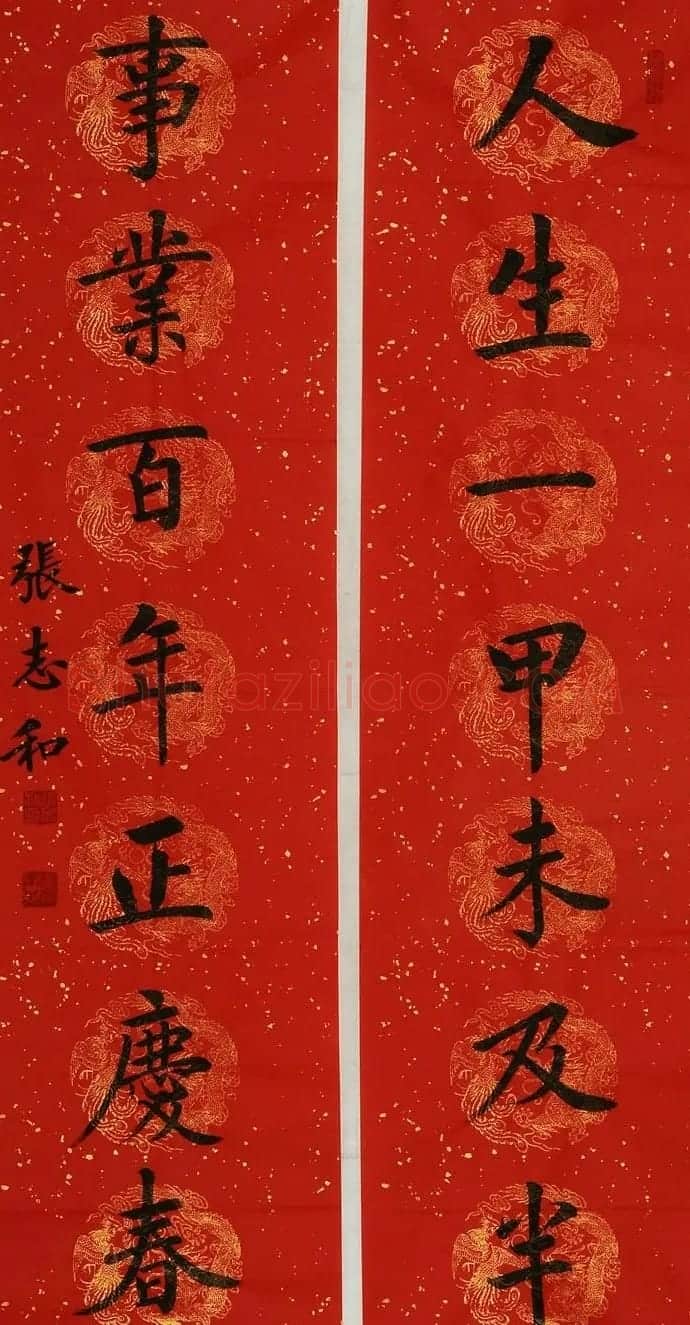 人生一甲未及半
事業百年正慶春
張志和